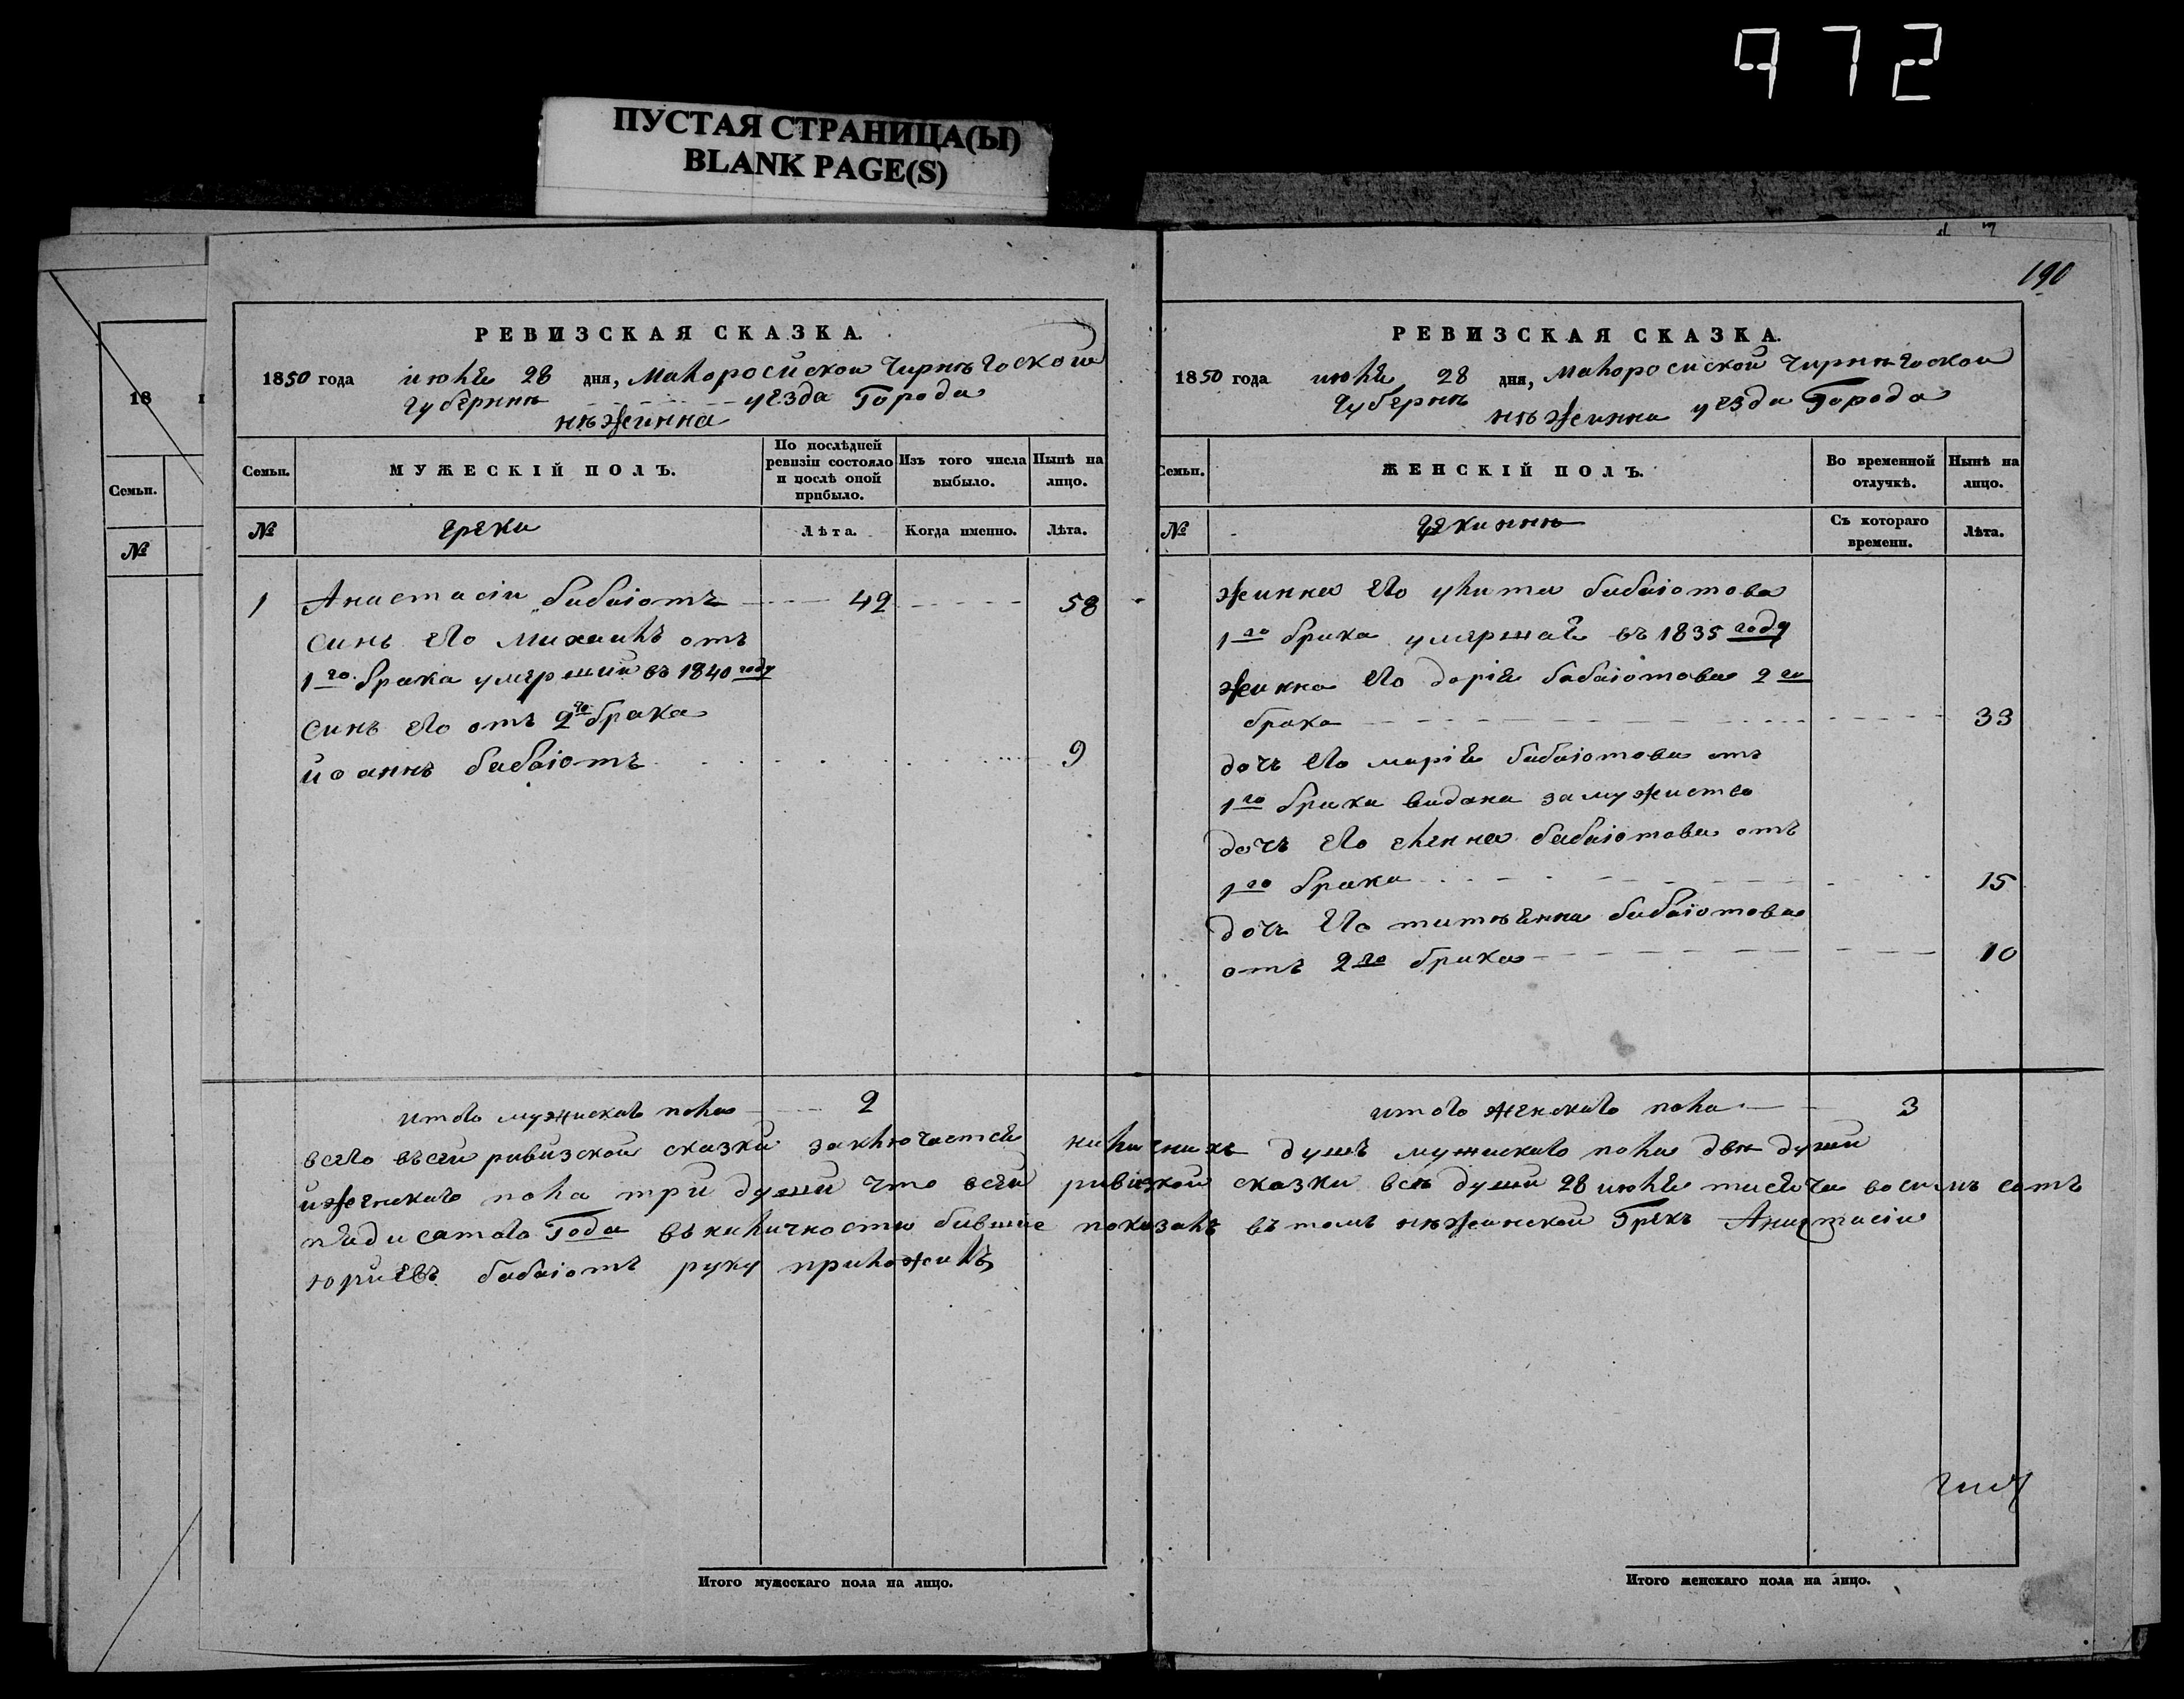 972
ПУСТАЯ СТРАНИЦА(Ы)
BLANK PAGE(S)
190
18
Семьи.
№
РЕВИЗСКАЯ СКАЗКА.
1850 года июля 28 дня, малоросийскои чирнѣгоской
губернии уезда Города
нѣжинна
Семьи.
МУЖЕСКІЙ ПОЛЪ.
По послѣдней ревизіи состояло и послѣ оной прибыло.
Изъ того числа выбыло.
Нынѣ на лицо.
№
греки
Лѣта.
Когда именно.
Лѣта.
1 Анастасіи бабаіотъ 49 58
синъ его михаилъ отъ
1го брака умерший въ 1840 году
синъ его отъ 2го брака
йоаннъ бабаіотъ 9
итого мужискаго пола 2
РЕВИЗСКАЯ СКАЗКА.
1850 года июля 28 дня, малоросийской чирнѣгоской
губернѣ нѣжинна уезда Города
Семьи.
ЖЕНСКІЙ ПОЛЪ.
Во временной отлучкѣ.
Нынѣ на лицо.
№
Съ котораго времени.
Лѣта.
жинна его улита бабаіотова
1го брака умершая въ 1835 году
жинна его дарія бабаіотова 2го
брака 33
дочъ его марія бабаіотова отъ
1го брака видана замужиство
дочъ его еленна бабаіотова отъ
1го брака 15
дочъ его татѣянна бабаіотова
отъ 2го брака 10
итого женскаго пола 3
всего въсей ривизской сказки заключается наличнихъ душъ мужискаго пола двѣ души
иженскаго пола три души что всей ривизкой сказки всѣ души 28 июля тисяча восимъ сотъ
пядисятого Года въналичности бившие показалъ вътомъ нѣжинской Грекъ Анастасіи
юриевъ бабаіотъ руку приложилъ
Итого мужескаго пола на лицо.
Итого женскаго пола на лицо.